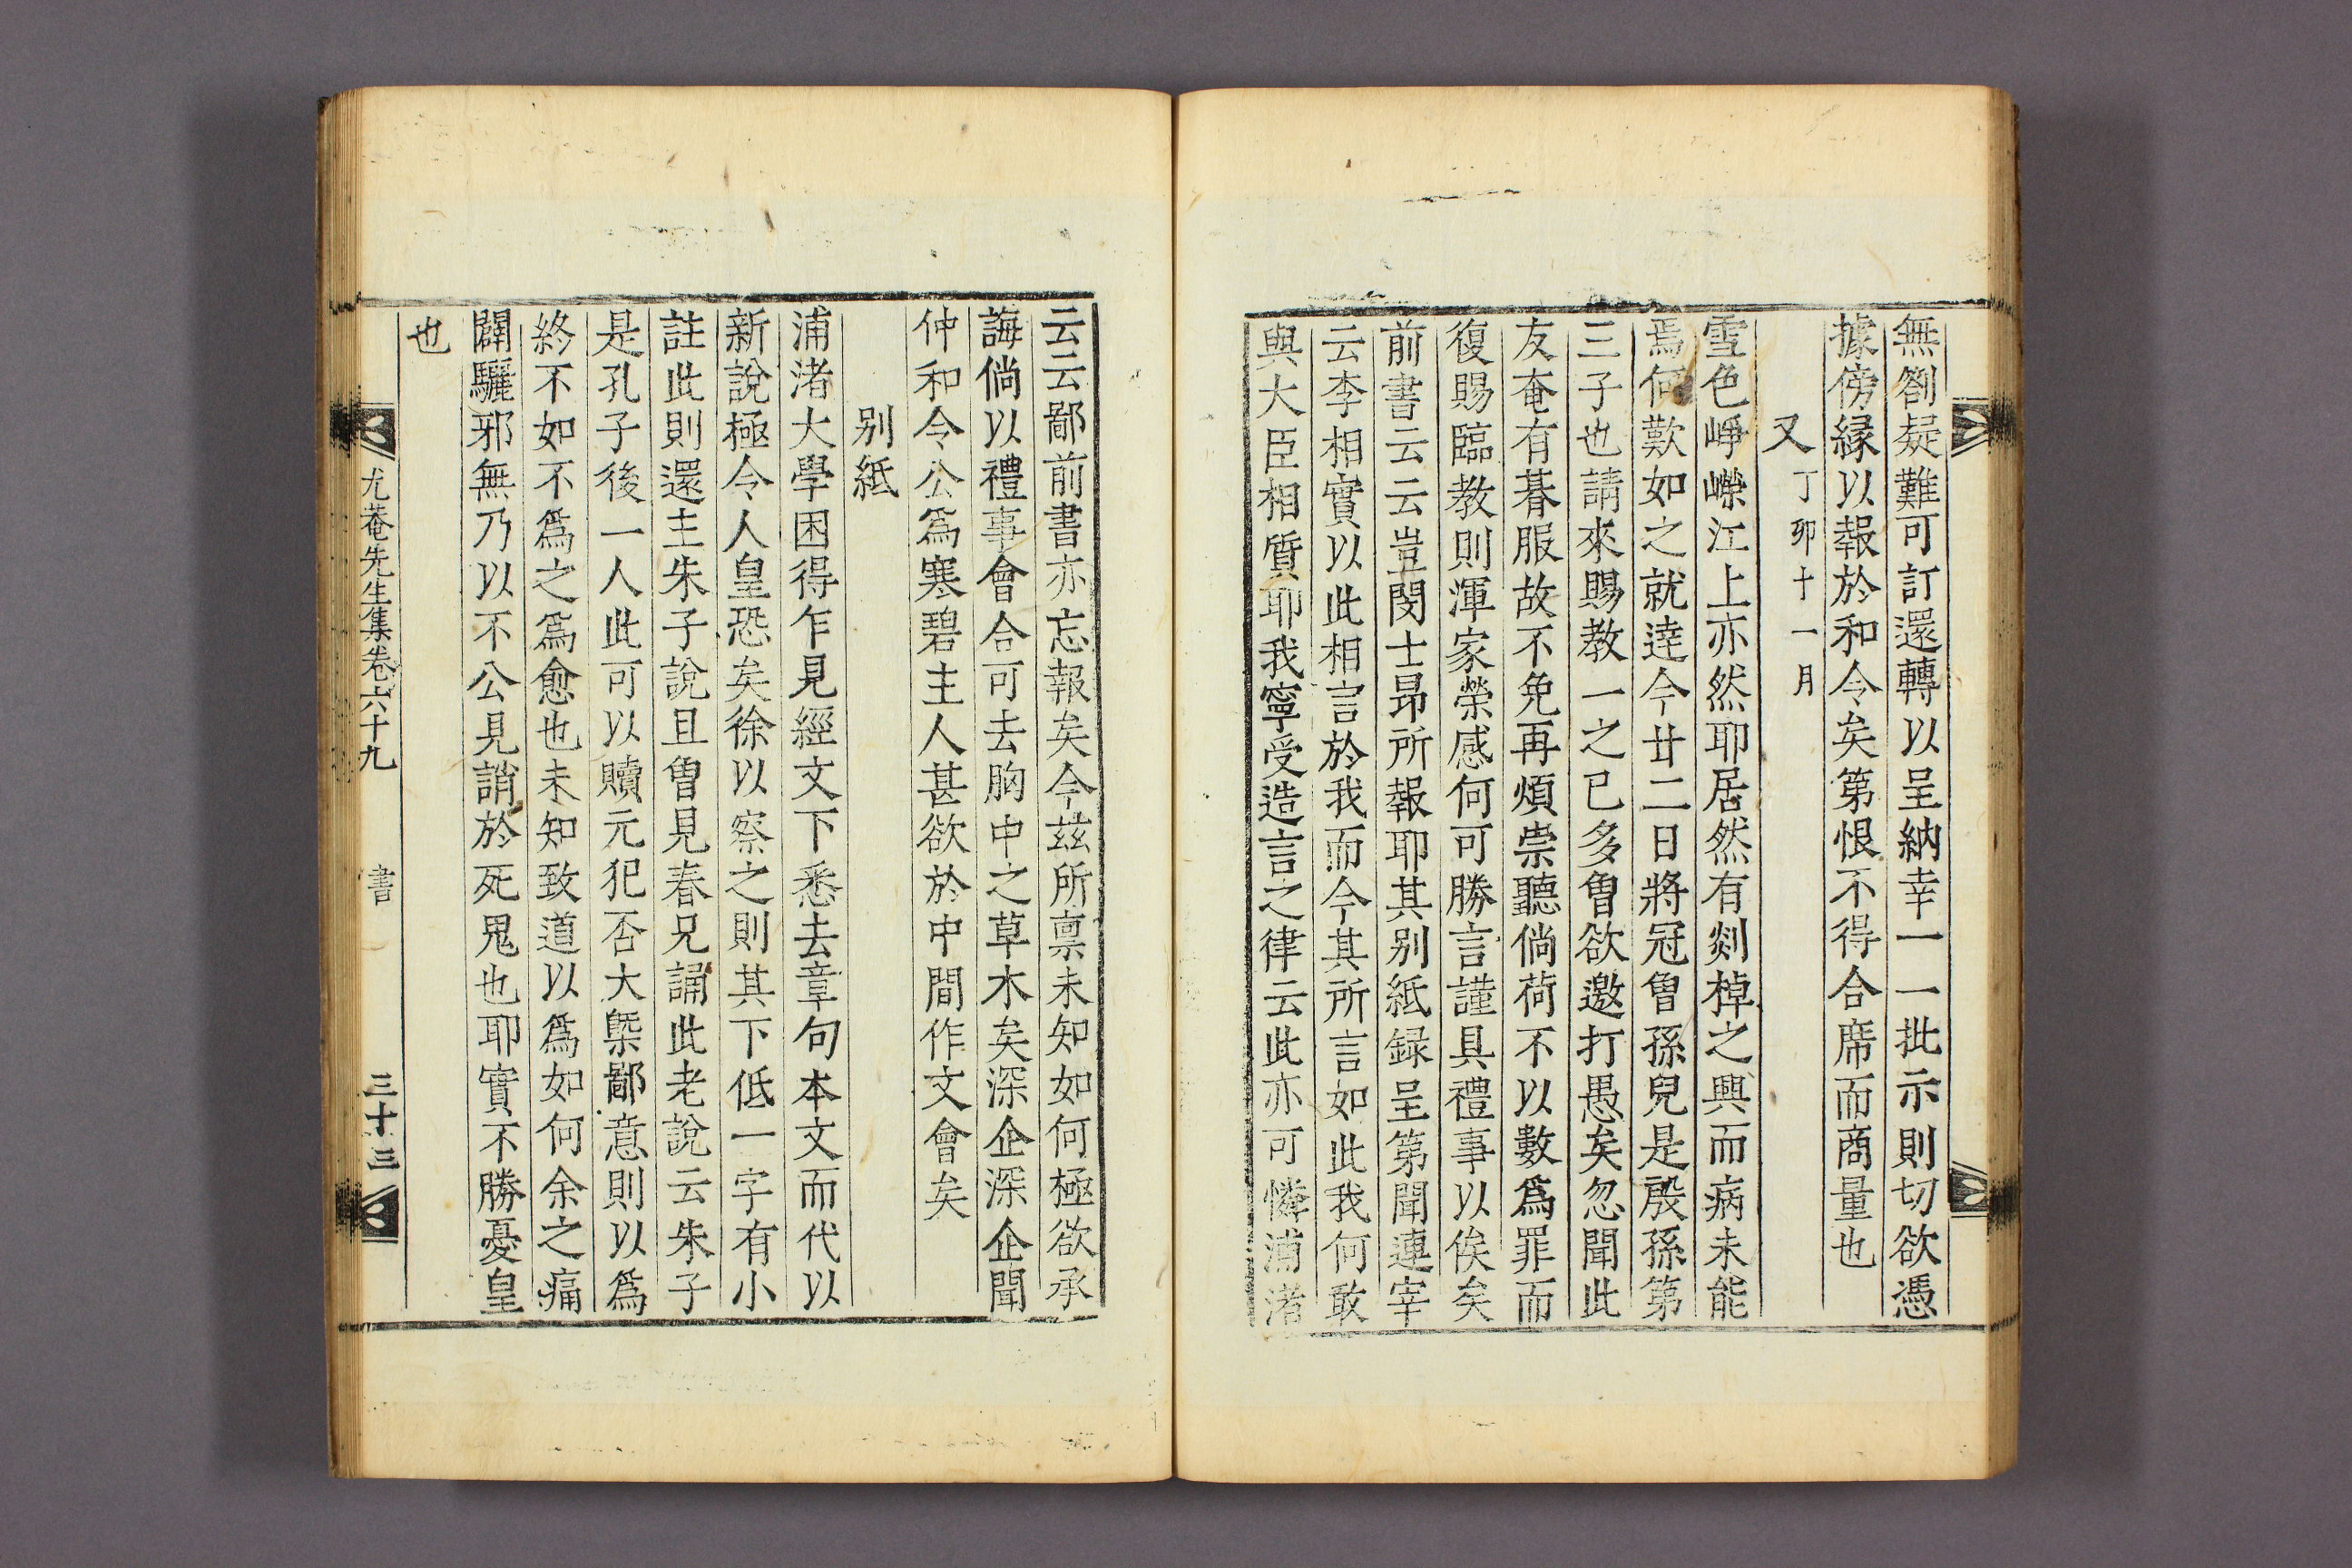 無劄疑難可訂還轉以呈納幸一一批示則切欲憑
據傍緣以報於和令矣第恨不得合席而商量也
又 丁卯十一月
雪色崢嶸江上亦然耶居然有剡棹之興而病未能
焉何歎如之就達今廿二日將冠曾孫兒是殷孫第
三子也請來賜教一之已多曾欲邀打愚矣忽聞此
友奄有朞服故不免再煩崇聽倘荷不以數爲罪而
復賜臨教則渾家榮感何可勝言謹具禮事以俟矣
前書云云豈閔士昻所報耶其别紙録呈第聞連宰
云李相實以此相言於我而今其所言如此我何敢
與大臣相質耶我寧受造言之律云此亦可憐浦渚
云云鄙前書亦忘報矣今玆所禀未知如何極欲承
誨倘以禮事會合可去胸中之草木矣深企深企聞
仲和令公爲寒碧主人甚欲於中間作文會矣
别紙
浦渚大學困得乍見經文下悉去章句本文而代以
新說極令人皇恐矣徐以察之則其下低一字有小
註此則還主朱子說且曾見春兄誦此老說云朱子
是孔子後一人此可以贖元犯否大槩鄙意則以爲
終不如不爲之爲愈也未知致道以爲如何余之痛
闢驪邪無乃以不公見誚於死鬼也耶實不勝憂皇
也
尤菴先生集卷六十九 書 三十三